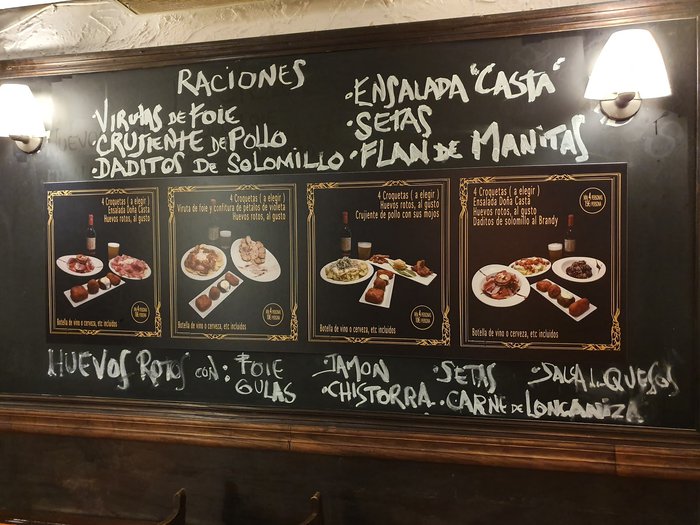 RACIONES
VIRUTAS DE FOIE
CRUJIENTE DE POLLO
DADITOS DE SOLOMILLO
·ENSALADA "CASTA"
·SETAS
·FLAN DE MANITAS
4 Croquetas ( a elegir )
Ensalada Doña Casta
Huevos rotos, al gusto
Botella de vino o cerveza, etc incluidos
4 Croquetas ( a elegir )
Viruta de foie y confitura de pétalos de violeta
Huevos rotos, al gusto
Botella de vino o cerveza, etc incluidos
4 Croquetas ( a elegir )
Huevos rotos, al gusto
Crujiente de pollo con sus mojos
Botella de vino o cerveza, etc incluidos
4 Croquetas ( a elegir )
Ensalada Doña Casta
Huevos rotos, al gusto
Daditos de solomillo al Brandy
Botella de vino o cerveza, etc incluidos
HUEVOS ROTOS CON: FOIE
GULAS
JAMON
·CHISTORRA
·SETAS
·CARNE DE LONGANIZA
·SALSA QUESOS